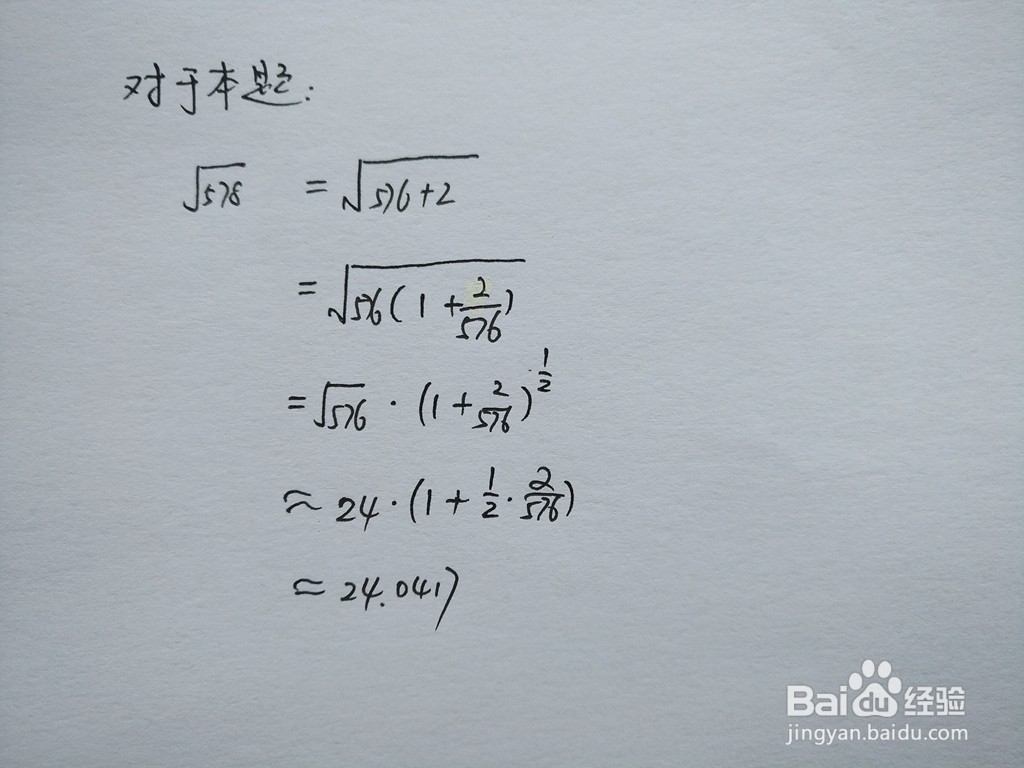 对于本题:
√578 = √(576+2)
= √(576(1+2/576))
= √576 · (1+2/576)^(1/2)
≈ 24·(1+1/2·2/576)
≈ 24.0417
Baidu经验
jingyan.baidu.com